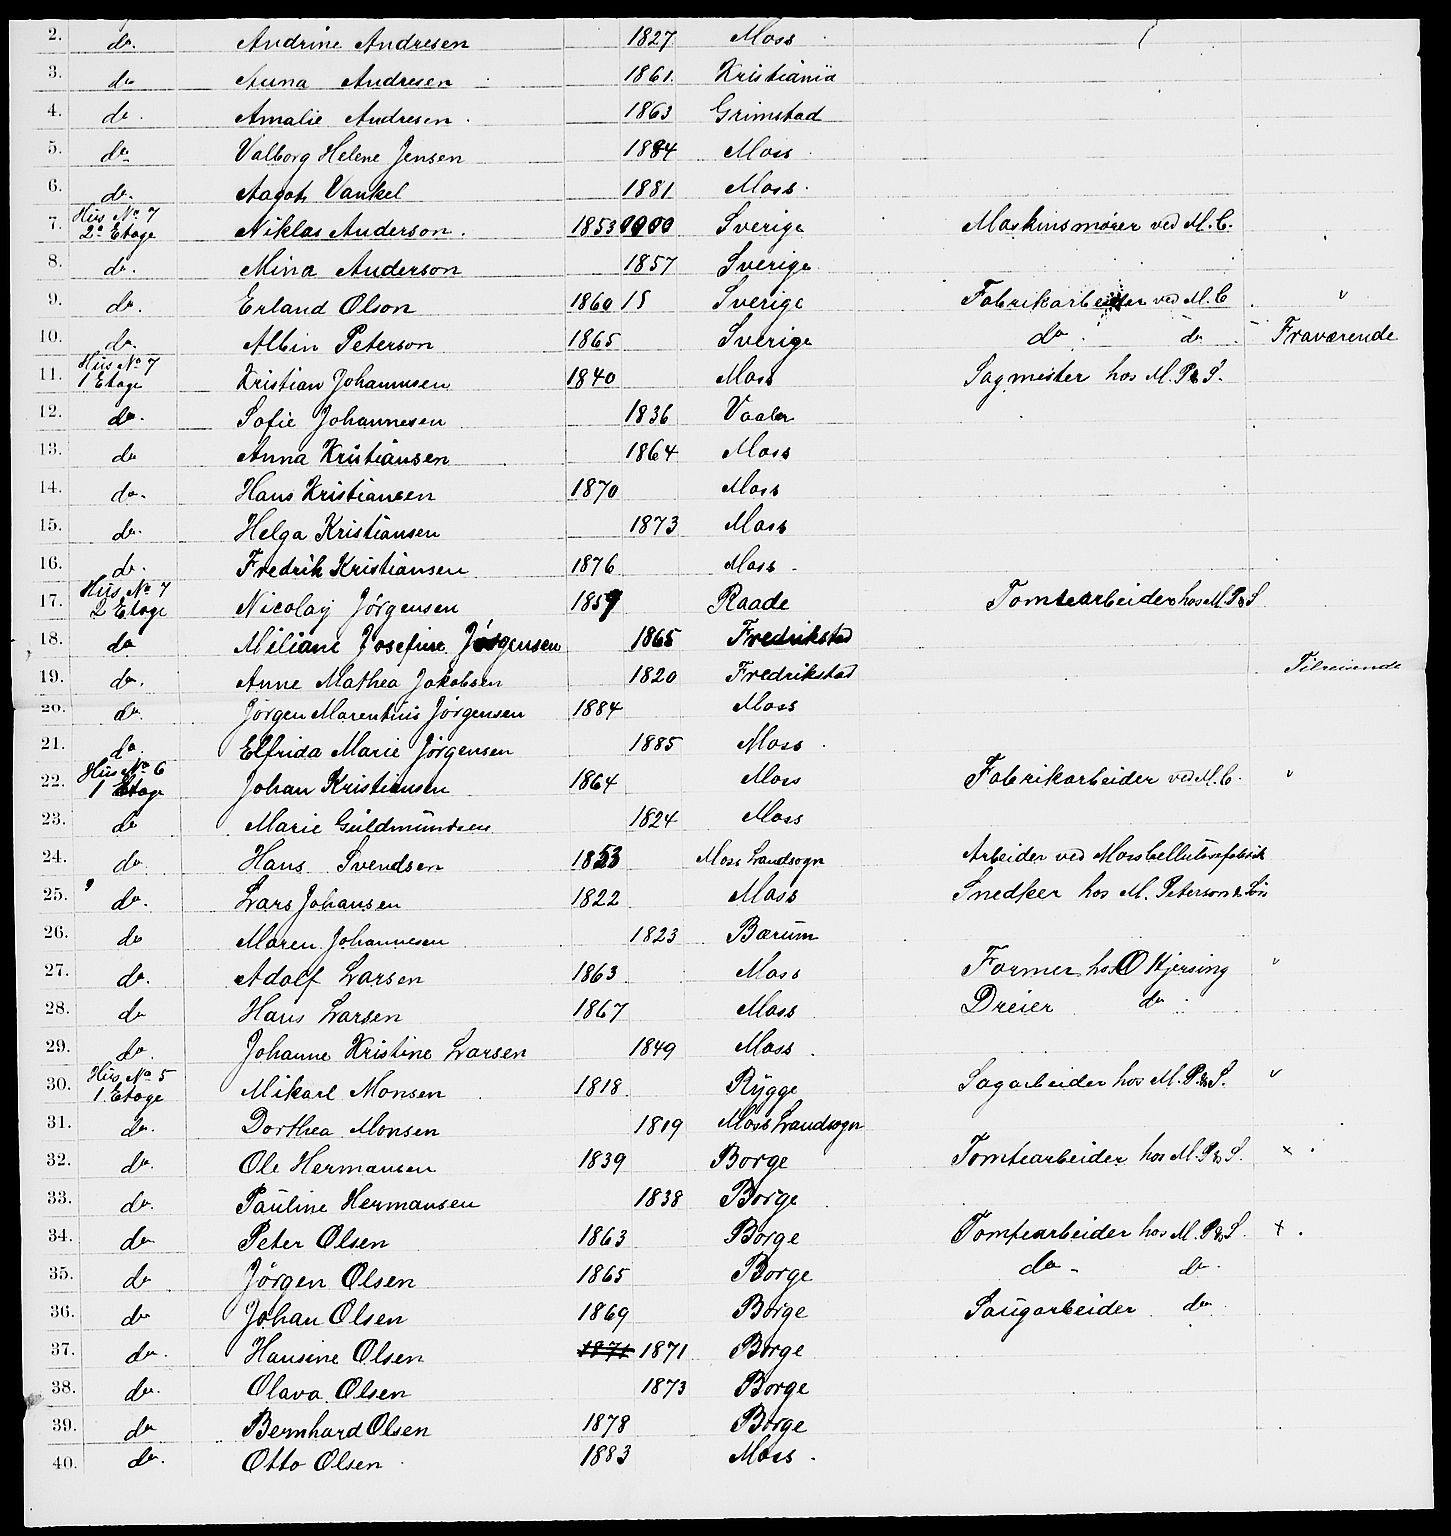 2. do. Andrine Andresen 1827 Moss
3. do Anna Andresen 1861. Kristiania
4. do. Amalie Andresen. 1863 Grimstad
5. do Valborg Helene Jensen 1884 Moss
6. do. Aagot Vankel 1881 Moss.
Hus No 7
7. 2. Etage Niklas Anderson. 1853 Sverige Maskinsmører ved M.C.
8. do. Mina Anderson 1857 Sverige
9. do. Erland Olson 1860 15 Sverige Fabrikarbeider ved M.C. "
10. do. Albin Peterson 1865 Sverige do do Fraværende
Hus No 7
11. 1 Etage Kristian Johannesen 1840 Moss Sagmester hos M. P & S.
12. do. Sofie Johannesen 1836 Vaaler
13. do Anna Kristiansen 1864 Moss
14. do. Hans Kristiansen 1870 Moss
15. do. Helga Kristiansen 1873 Moss
16. do. Fredrik Kristiansen 1876 Moss.
Hus No 7
17. 2 Etage Nicolay Jørgensen 1859 Raade Tomtearbeider hos M. P & S
18. do Miliane Josefine Jørgensen 1865 Fredrikstad
19. do. Anne Mathea Jakobsen 1820 Fredrikstad Tilreisende
20. do. Jørgen Marentius Jørgensen 1884 Moss
21. do. Elfrida Marie Jørgensen 1885 Moss.
Hus No 6
22. 1 Etage Johan Kristiansen 1864 Moss Fabrikarbeider ved M.C. "
23. do Marie Guldmundsen 1824 Moss
24. do. Hans Svendsen 1853 Moss Landsogn Arbeider ved Moss Cellulosefabrik
25. do. Lars Johansen 1822 Moss Snedker hos M. Peterson & Søn
26. do Maren Johannesen 1823 Bærum
27. do. Adolf Larsen 1863 Moss Former hos O Kjersing "
28. do Hans Larsen 1867 Moss Dreier do
29. do. Johanne Kristine Larsen 1849 Moss.
Hus No 5
30. 1. Etage Mikael Monsen 1818 Rygge Sagarbeider hos M. P. & S. "
31. do. Dorthea Monsen 1819 Moss Landsogn
32. do. Ole Hermansen 1839 Borge Tomtearbeider hos M. P & S. ×
33. do. Pauline Hermansen 1838 Borge
34. do Peter Olsen 1863 Borge Tomtearbeider hos M. P & S. ×
35. do Jörgen Olsen 1865 Borge do - do.
36. do Johan Olsen 1869 Borge Saugarbeider do
37. do. Hansine Olsen 1871 1871 Borge
38. do. Olava Olsen 1873 Borge
39. do Bernhard Olsen 1878 Borge
40. do. Otto Olsen 1883 Moss.